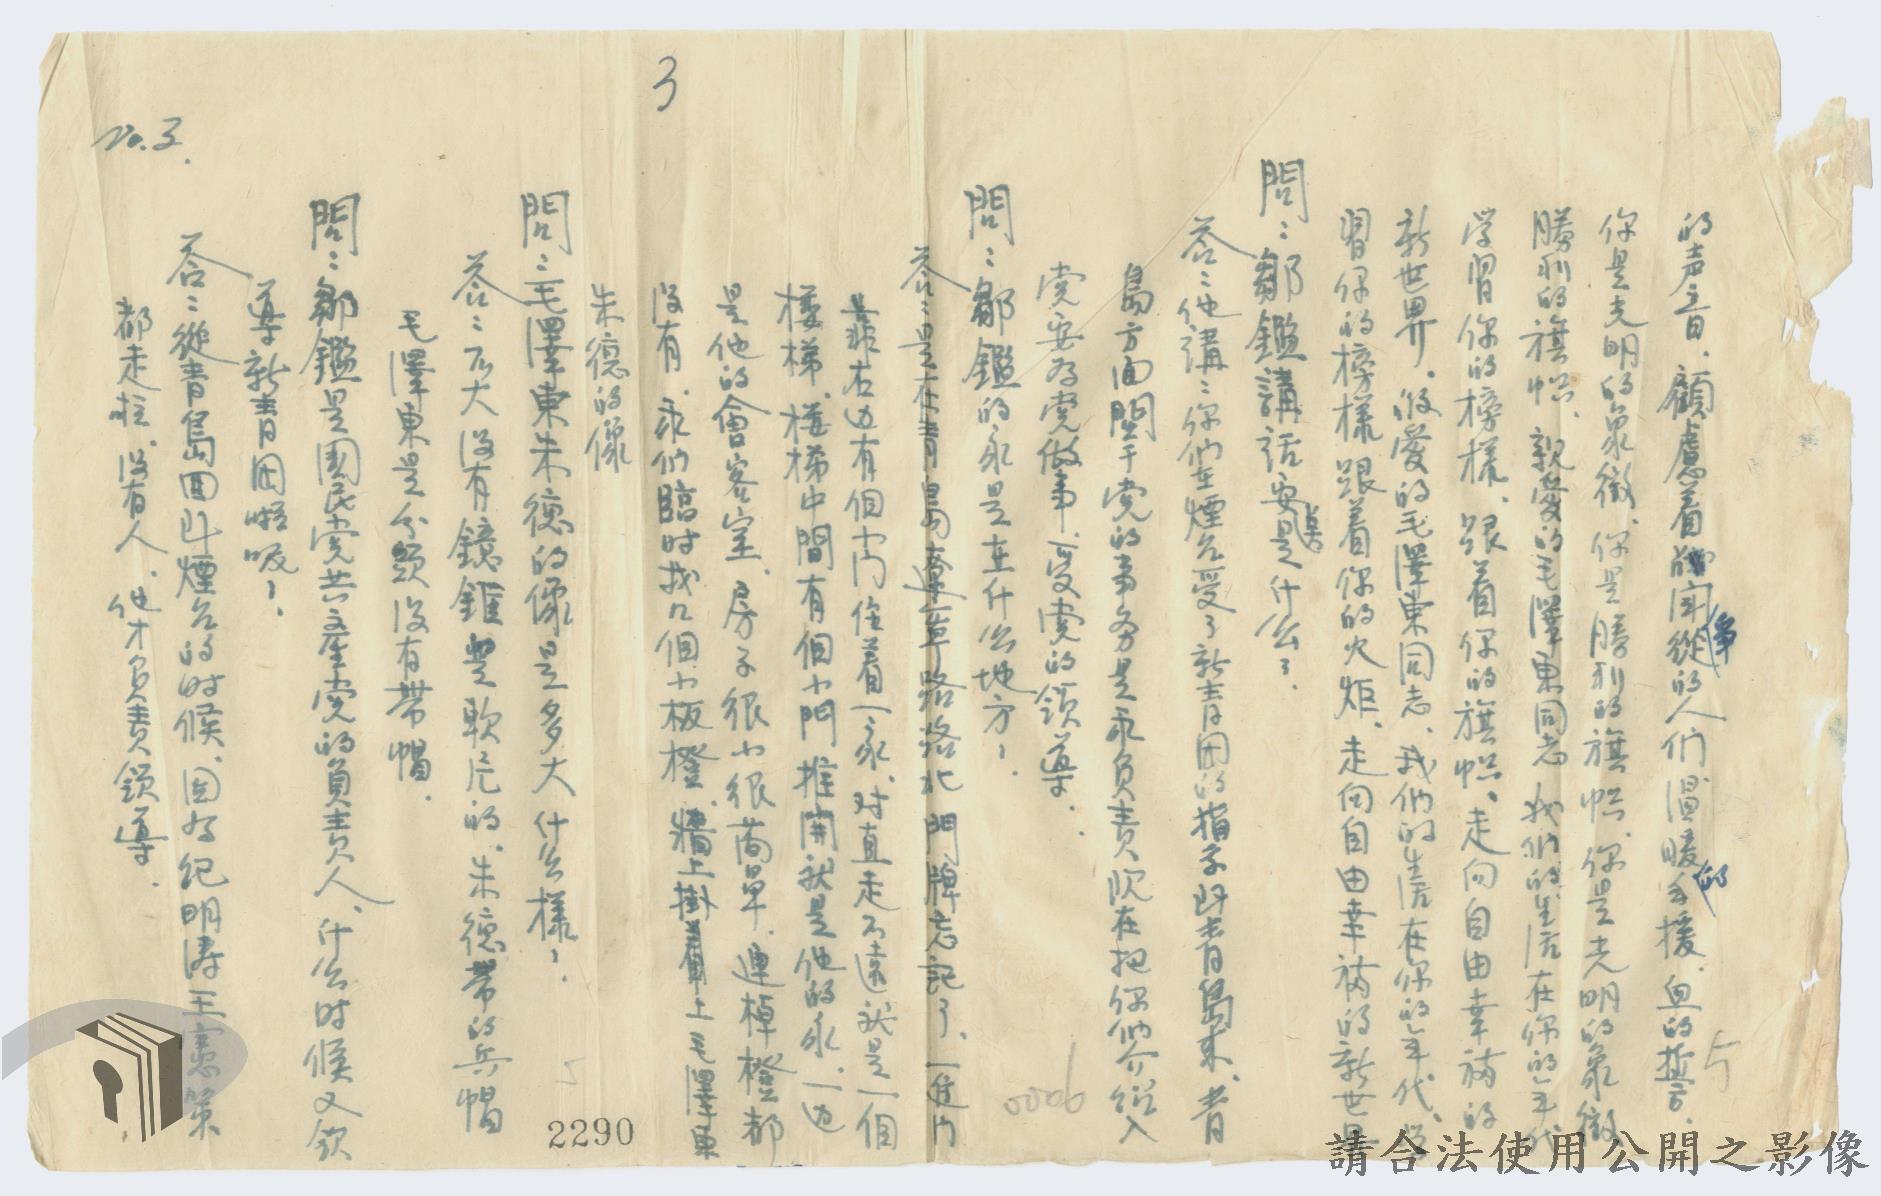 3
No.3.
的声音、顧慮着斗争的人们温暖的手援、血的誓言、
你是光明的象徵、你是勝利的旗幟、你是光明的象徵
勝利的旗幟、親愛的毛澤東同志我们的生活在你的年代
学習你的榜樣、跟着你的旗幟、走向自由幸福的
新世界、敬愛的毛澤東同志、我们的生活在你的年代、学
習你的榜樣跟着你的火炬、走向自由幸福的新世界
問：鄒鑑講話要是什么？
答：他講：你们在煙台受了新青团的指示到青島来、青
島方面関于党的事务是我负责、现在把你们介绍入
党要为党做事、受党的領導、
問：鄒鑑的家是在什么地方？
答：是在青島遼寧路路北門牌忘記了、一進门
靠右边有個小门住着一家、对直走不遠就是一個
楼梯、楼梯中間有個小門推開就是他的家、一边
是他的會客室、房子很小很简单、連棹橙都
没有、我们臨时找几個小板橙、牆上掛着上毛澤東
朱德的像
問：毛澤東朱德的像是多大什么樣？
答：不大没有鏡框是軟片的、朱德帶的兵帽
毛澤東是分頭没有带帽、
問：鄒鑑是國民党共产党的負責人、什么时候又領
導新青团呢？
答：從青島回到煙台的时候、因为纪明涛王憲策
都走啦、没有人、他才负责領導、
5
0006
2290
請合法使用公開之影像